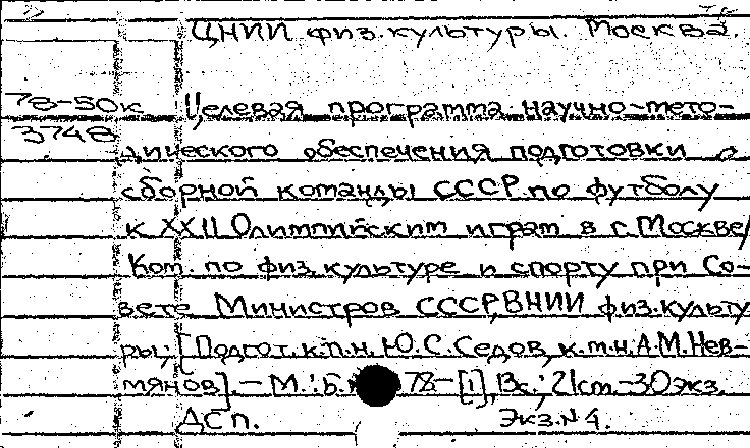 ЦНИИ физ.культуры. Москва.
78-50к Целевая программа научно-мето-
3748
дического обеспечения подготовки
сборной команды СССР по футболу
к XXII Олимпийским играм в г.Москве/
Ком. по физ.культуре и спорту при Со-
вете Министров СССР,ВНИИ физ.культу
ры; [Подгот. к.п.н. Ю.С.Седов, к.т.н. А.М.Нев-
мянов].-М.: Б. 78-[1],13с.; 21см.-30экз.
ДСП. Экз.N4.